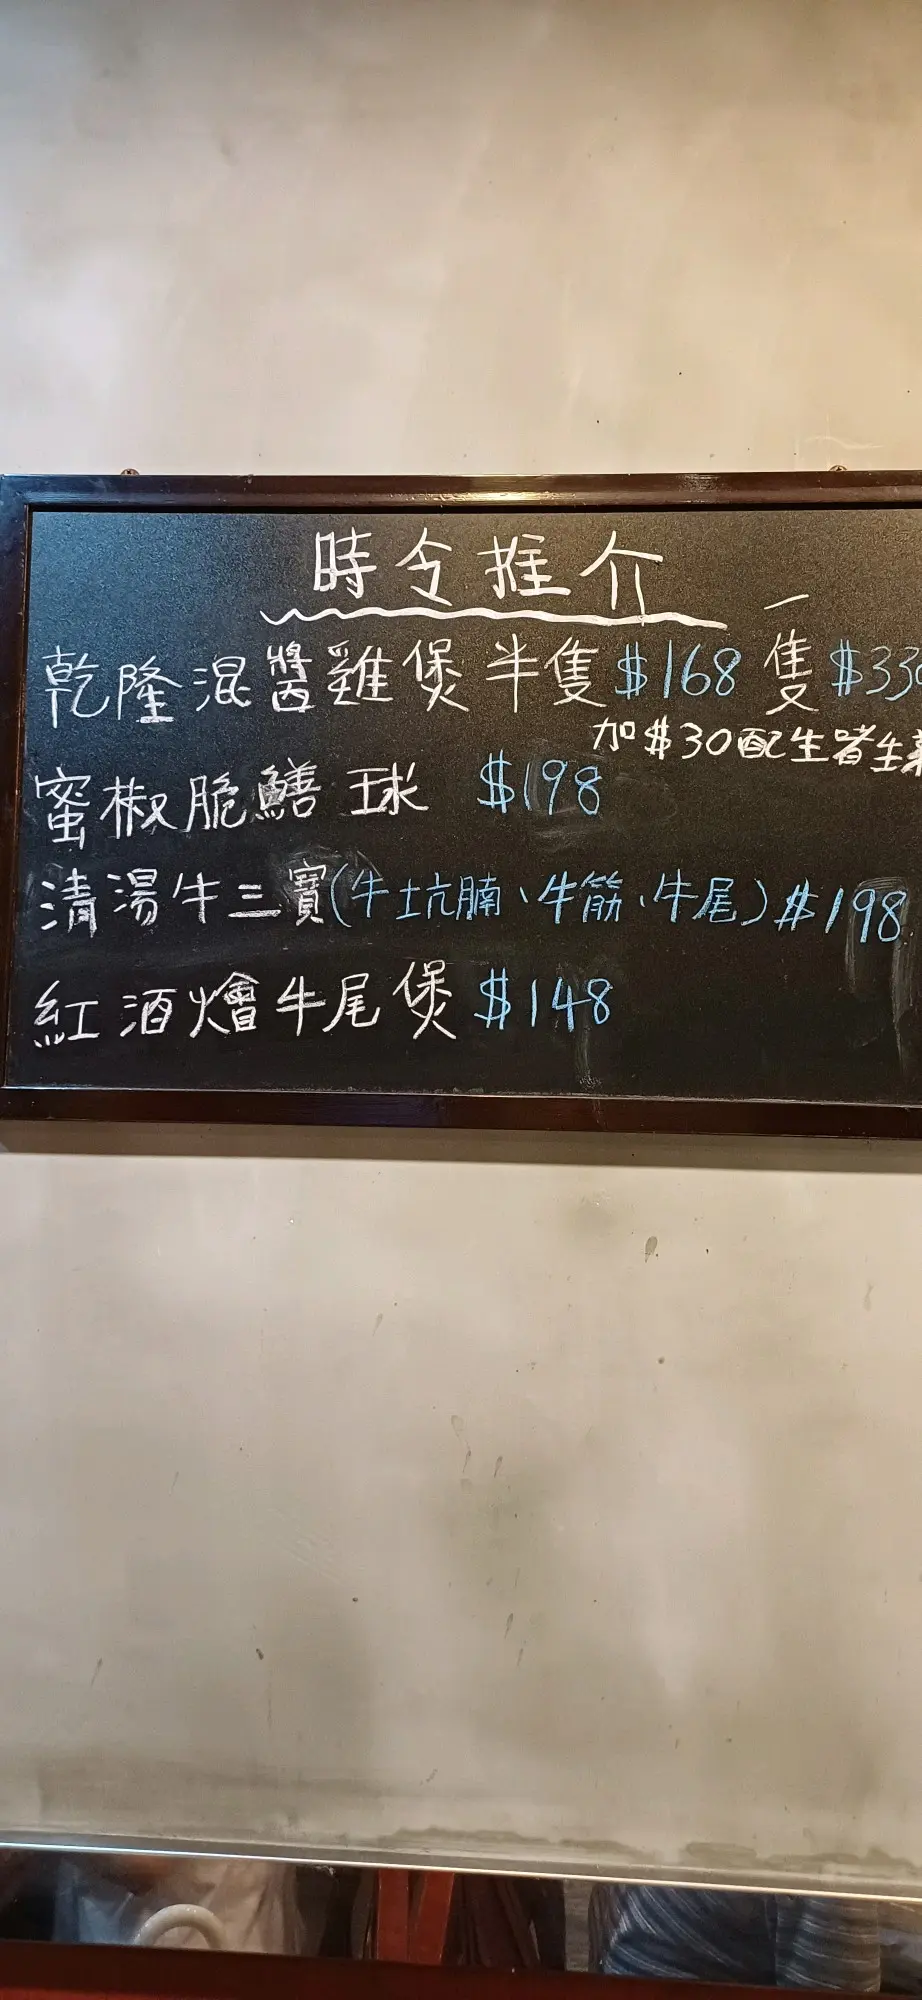 時令推介
乾隆混醬雞煲半隻$168一隻$33
加$30配生啫生
蜜椒脆鱔球 $198
清湯牛三寶(牛坑腩、牛筋、牛尾)$198
紅酒燴牛尾煲$148